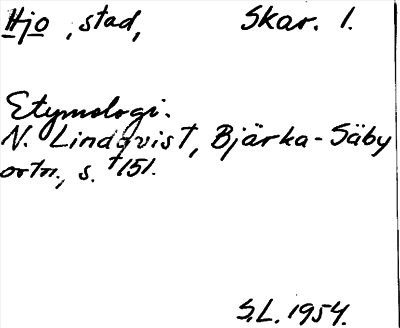 Hjo, stad, Skar. 1.
Etymologi.
N. Lindqvist, Bjärka-Säby
ortn., s. 151.
S.L. 1954.